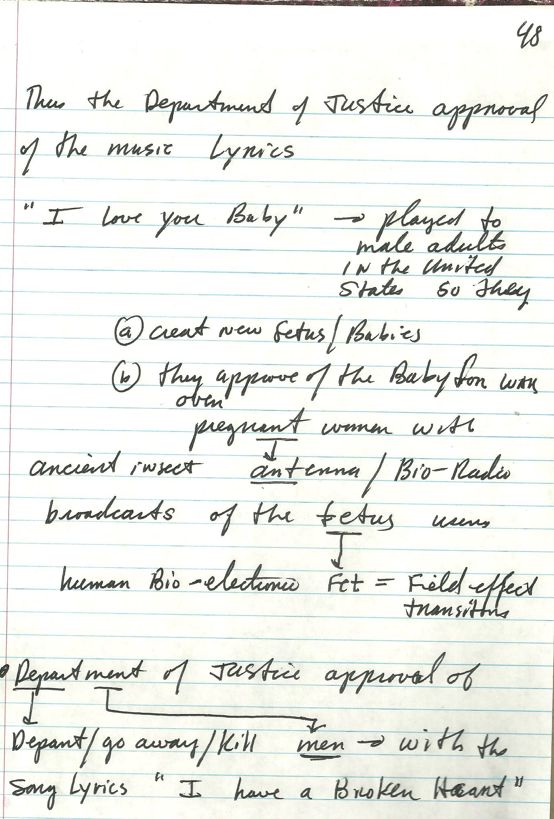 48
Thus the Department of Justice approval
of the music Lyrics
"I Love you Baby" → played to
male adults
IN the United
States so they
(a) creat new fetus/Babies
(b) they approve of the Baby for war
over
pregnant women with
ancient insect antenna / Bio-Radio
broadcasts of the fetus uses
human Bio-electronic Fet = Field-effect
transitors
Department of Justice approval of
Depart/go away/Kill men → with the
Song Lyrics "I have a Broken Heart"